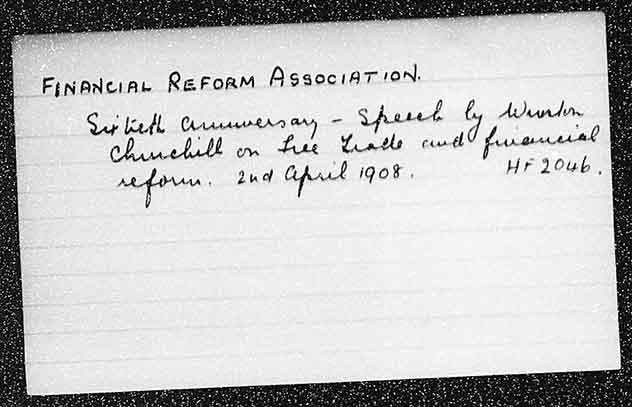 FINANCIAL REFORM ASSOCIATION.
Sixtieth anniversary - Speech by Winston
Churchill on Free Trade and financial
reform. 2nd April 1908. HF 2046.